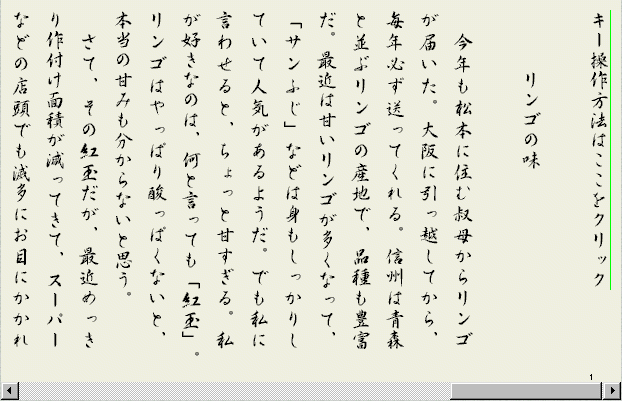 キー操作方法はここをクリック
リンゴの味
今年も松本に住む叔母からリンゴ
が届いた。大阪に引っ越してから、
毎年必ず送ってくれる。信州は青森
と並ぶリンゴの産地で、品種も豊富
だ。最近は甘いリンゴが多くなって、
「サンふじ」などは身もしっかりし
ていて人気があるようだ。でも私に
言わせると、ちょっと甘すぎる。私
が好きなのは、何と言っても「紅玉」。
リンゴはやっぱり酸っぱくないと、
本当の甘みも分からないと思う。
さて、その紅玉だが、最近めっき
り作付け面積が減ってきて、スーパー
などの店頭でも滅多にお目にかかれ
1